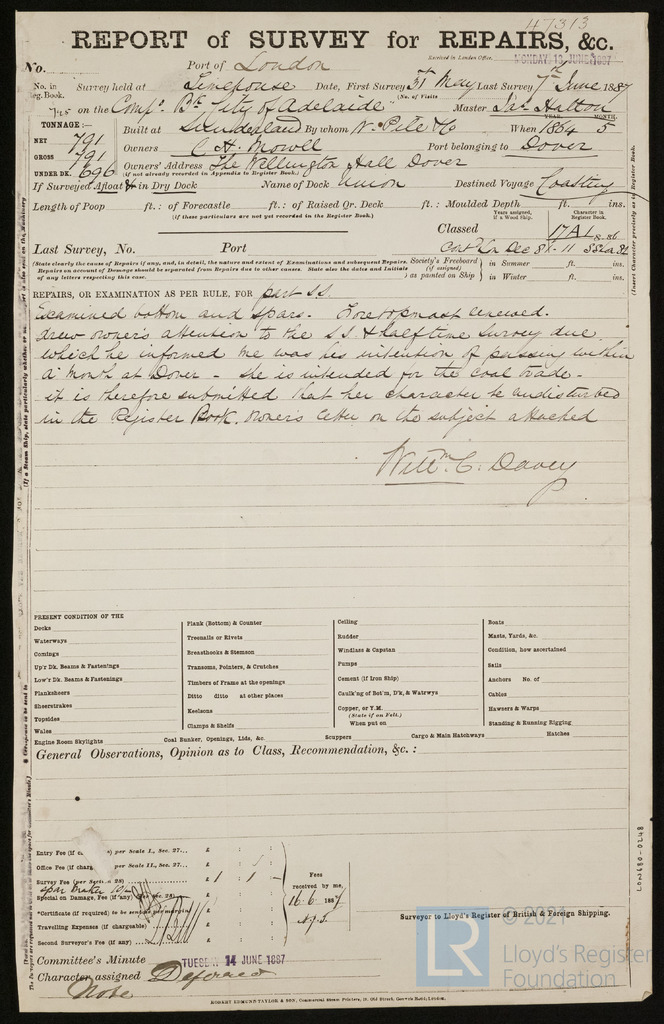 47313
REPORT of SURVEY for REPAIRS, &c.
Received in London Office,
MONDAY 13 JUNE 1887
No. Port of London
No. in Reg. Book. Survey held at Limehouse Date, First Survey 31st May Last Survey 7th June 1887
(No. of Visits
745 on the Comp. Bk City of Adelaide" Master Jas Halton
TONNAGE:—
YEAR. MONTH.
NET 791 Built at Sunderland By whom W. Pile & Co When 1864 5
GROSS 791 Owners C H Mowll Port belonging to Dover
UNDER DK. 696 Owners' Address The Wellington Hall Dover
(If not already recorded in Appendix to Register Book.)
If Surveyed Afloat & in Dry Dock Name of Dock Union Destined Voyage Coasting
Length of Poop ft.: of Forecastle ft.: of Raised Qr. Deck ft.: Moulded Depth ft. ins.
(If these particulars are not yet recorded in the Register Book.)
Years assigned, if a Wood Ship.
Character in Register Book.
Classed 17A1 8.86
Last Survey, No. Port
(State clearly the cause of Repairs if any, and, in detail, the nature and extent of Examinations and subsequent Repairs. Repairs on account of Damage should be separated from Repairs due to other causes. State also the dates and Initials of any letters respecting this case.
Society's Freeboard (if assigned) as painted on Ship
in Summer ft. ins.
in Winter ft. ins.
REPAIRS, OR EXAMINATION AS PER RULE, FOR part SS.
Examined bottom and spars. Foretopmast renewed.
drew owner's attention to the S.S. & halftime survey due
which he informed me was his intention of passing within
a month at Dover - She is intended for the coal trade -
it is therefore submitted that her character be undisturbed
in the Register Book. Owner's letter on the subject attached
Willm C. Davey
PRESENT CONDITION OF THE
Decks
Waterways
Comings
Up'r Dk. Beams & Fastenings
Low'r Dk. Beams & Fastenings
Planksheers
Sheerstrakes
Topsides
Wales
Engine Room Skylights
Plank (Bottom) & Counter
Treenails or Rivets
Breasthooks & Stemson
Transoms, Pointers, & Crutches
Timbers of Frame at the openings
Ditto ditto at other places
Keelsons
Clamps & Shelfs
Coal Bunker, Openings, Lids, &c.
Ceiling
Rudder
Windlass & Capstan
Pumps
Cement (if Iron Ship)
Caulk'ng of Bot'm, D'k, & Watrwys
Copper, or Y.M.
(State if on Felt.)
When put on
Scuppers
Boats
Masts, Yards, &c.
Condition, how ascertained
Sails
Anchors No. of
Cables
Hawsers & Warps
Standing & Running Rigging
Cargo & Main Hatchways
Hatches
General Observations, Opinion as to Class, Recommendation, &c.:
Entry Fee (if per Scale I., Sec. 27... £ : :
Office Fee (if charg per Scale II., Sec. 27... £ : :
Survey Fee (per Section 28) £ 1 : 1 : -
Special on Damage, Fee (if any) (per Sec. 28) £ : :
*Certificate (if required) to be sent as per margin £ : :
Travelling Expenses (if chargeable) £ : :
Second Surveyor's Fee (if any) £ : :
Fees received by me,
16.6.1887
Surveyor to Lloyd's Register of British & Foreign Shipping.
Committee's Minute TUESDAY 14 JUNE 1887
Character assigned Deferred
Note
ROBERT EDMUND TAYLOR & SON, Commercial Steam Printers, 19, Old Street, Goswell Road, London.
(Insert Character precisely as in Register Book.
LON680-0248
LR
© 2021
Lloyd's Register
Foundation